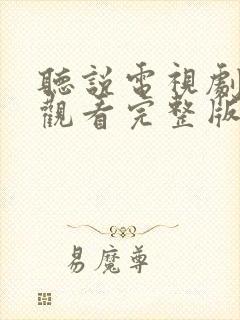 聽說電視劇
觀看完整版
易魔尊